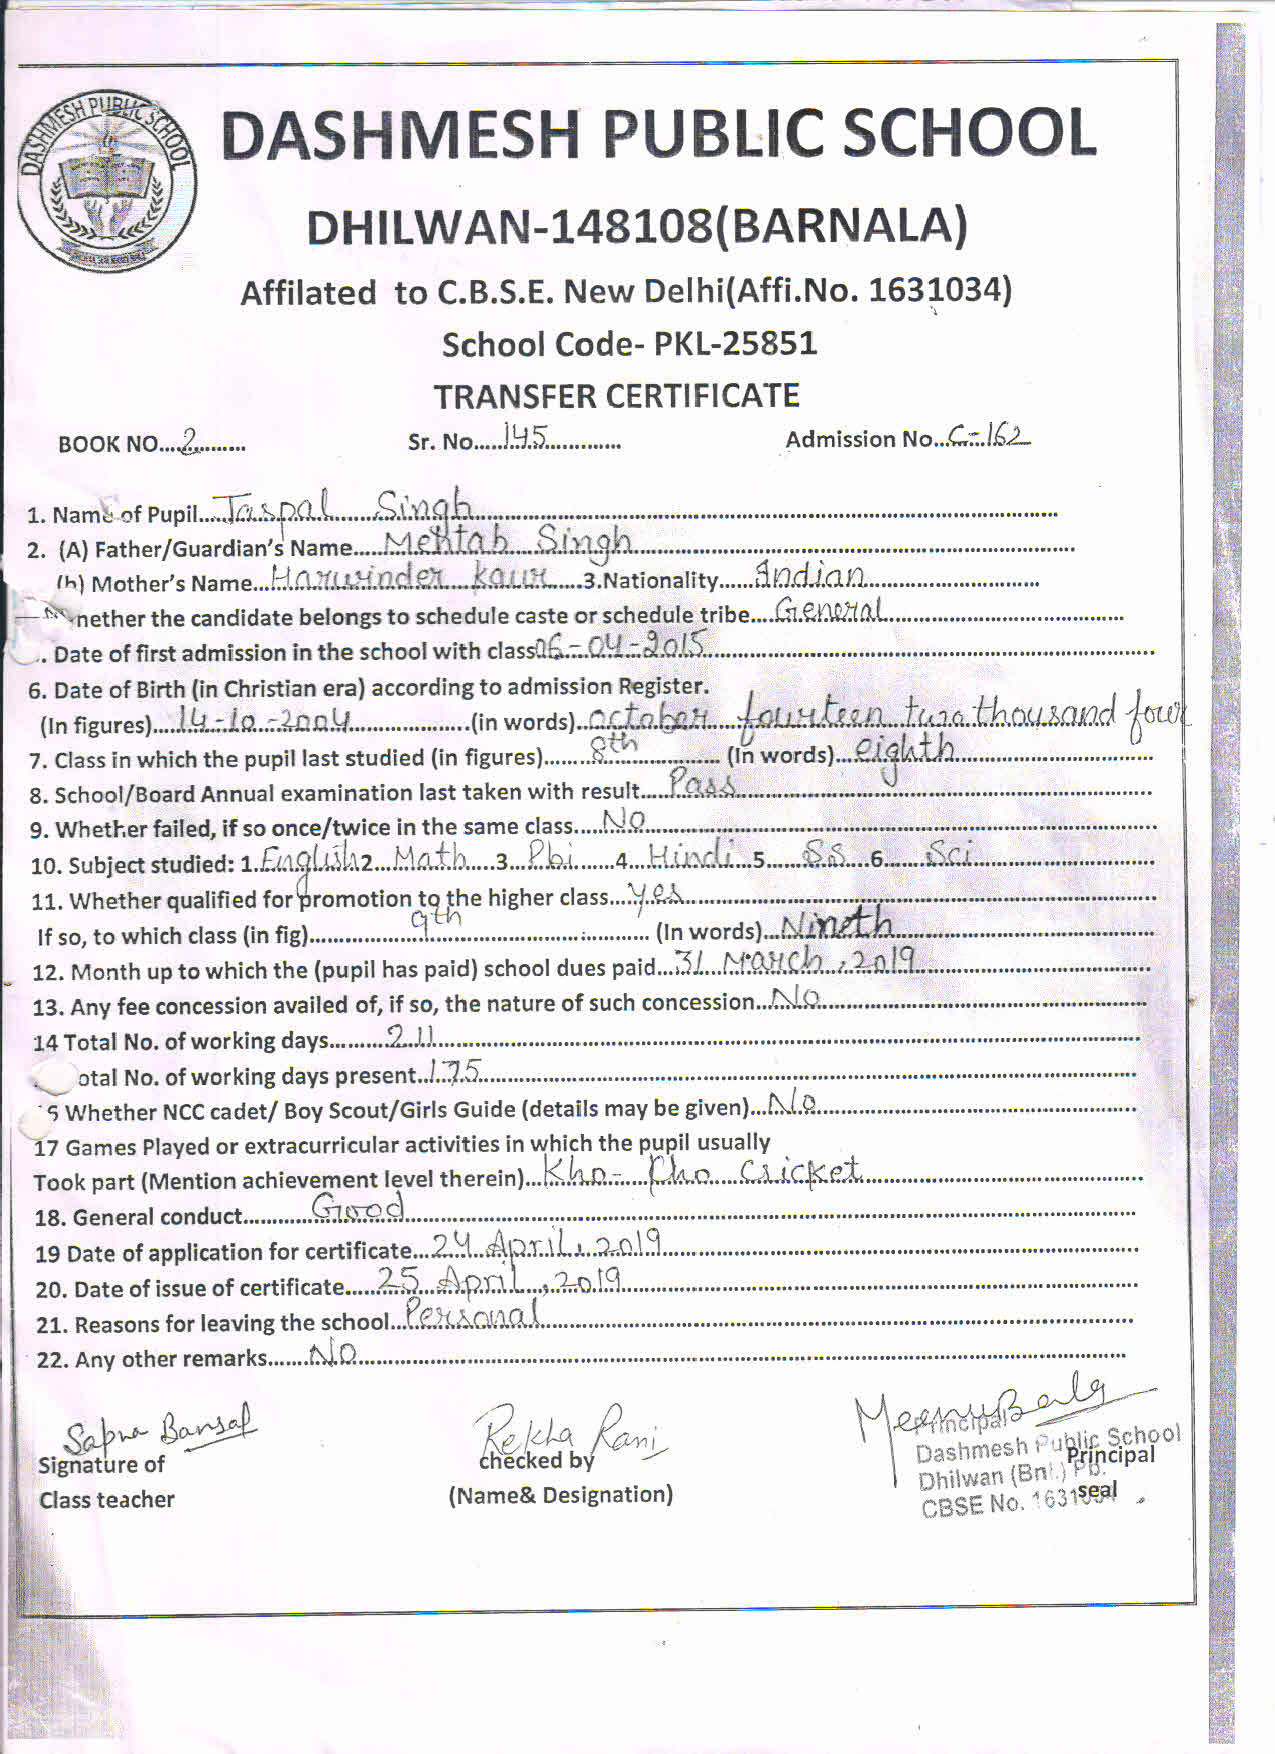 DASHMESH PUBLIC SCHOOL
DASHMESH PUBLIC SCHOOL
DHILWAN-148108(BARNALA)
Affilated to C.B.S.E. New Delhi(Affi.No. 1631034)
School Code- PKL-25851
TRANSFER CERTIFICATE
BOOK NO....2......... Sr. No.....145............. Admission No...C-162
1. Name of Pupil....Jaspal Singh
2. (A) Father/Guardian's Name.....Mehtab Singh
(b) Mother's Name...Harwinder Kaur.....3.Nationality.....Indian
hether the candidate belongs to schedule caste or schedule tribe....General
. Date of first admission in the school with class06-04-2015
6. Date of Birth (in Christian era) according to admission Register.
(In figures)....14-10-2004....................(in words)..october fourteen two thousand four
7. Class in which the pupil last studied (in figures).......8th............... (In words)...eighth
8. School/Board Annual examination last taken with result.....Pass
9. Whether failed, if so once/twice in the same class....No
10. Subject studied: 1.English2...Math....3...Pbi......4...Hindi..5......S.S...6......Sci
11. Whether qualified for promotion to the higher class....yes
If so, to which class (in fig)..................9th............................... (In words)...Nineth
12. Month up to which the (pupil has paid) school dues paid...31 March, 2019
13. Any fee concession availed of, if so, the nature of such concession...No
14 Total No. of working days..........211
otal No. of working days present..175
6 Whether NCC cadet/ Boy Scout/Girls Guide (details may be given)...No
17 Games Played or extracurricular activities in which the pupil usually
Took part (Mention achievement level therein)...Kho-Kho Cricket
18. General conduct...........Good
19 Date of application for certificate...24 April, 2019
20. Date of issue of certificate......25 April, 2019
21. Reasons for leaving the school...Personal
22. Any other remarks.......No
Sapna Bansal Rekha Rani
Principal
Dashmesh Public School
Signature of checked by Principal
Dhilwan (Bnl.) Pb.
Class teacher (Name& Designation) seal
CBSE No. 1631